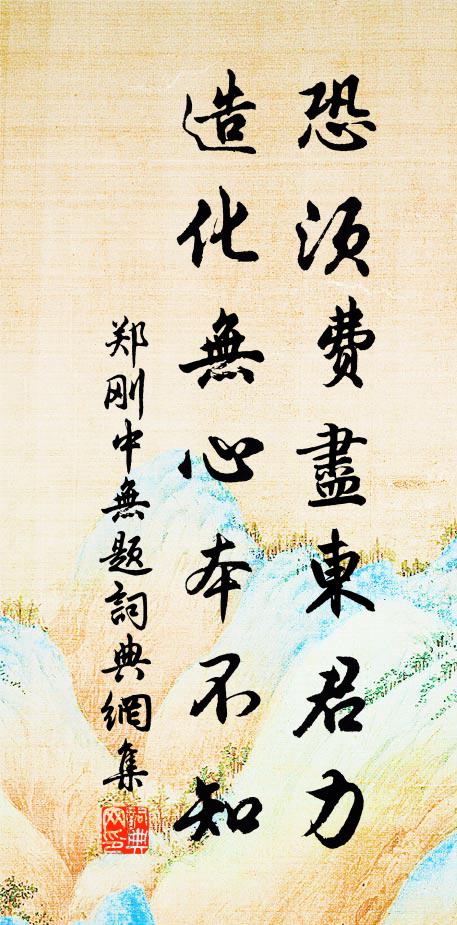 恐須費盡東君力
造化無心本不知
郑刚中無題詞典網集
詞典网印